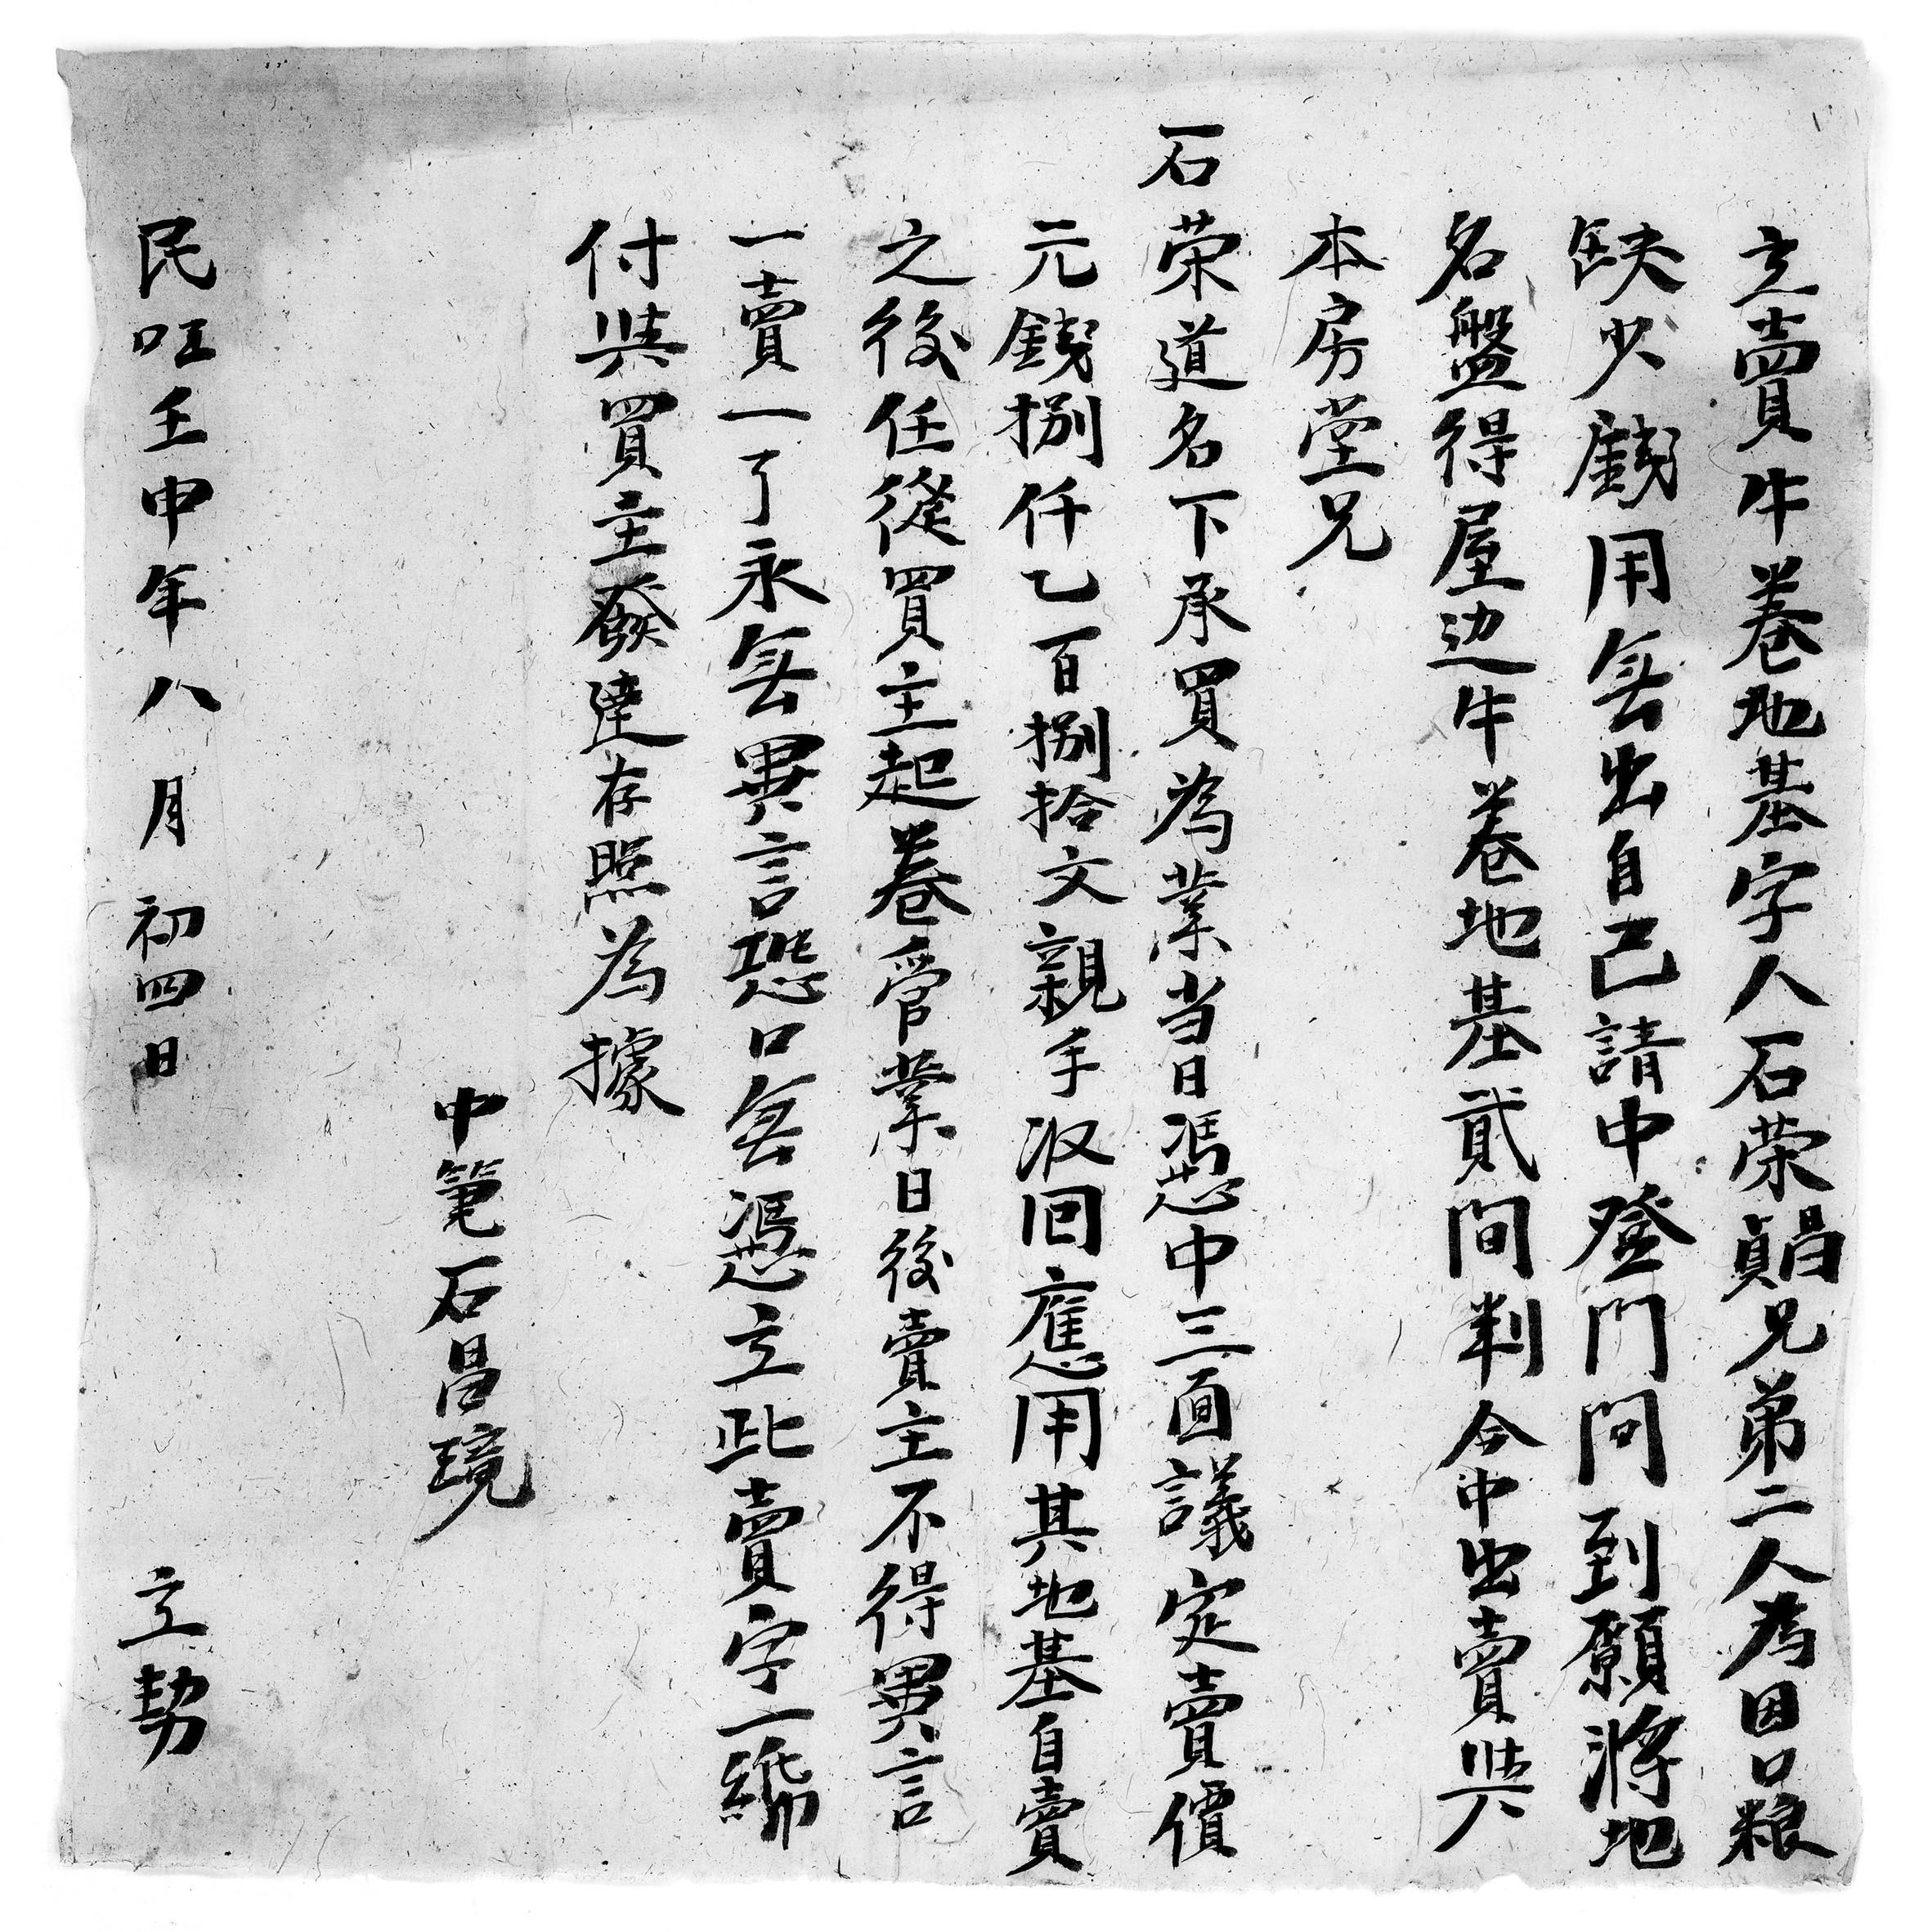 立賣牛菤地基字人石荣貞昌兄弟二人為因口粮
缺少錢用無出自己請中登門問到願將地
名盤得屋边牛菤地基貳間判今中出賣與
本房堂兄
石荣道名下承買為業当日憑中三面議定賣價
元錢捌仟乙百捌拾文親手収回應用其地基自賣
之後任從買主起菤管業日後賣主不得異言
一賣一了永無異言恐口無憑立此賣字一紙
付與買主發達存照為據
中筆石昌璄
民国壬申年八月初四日 立契